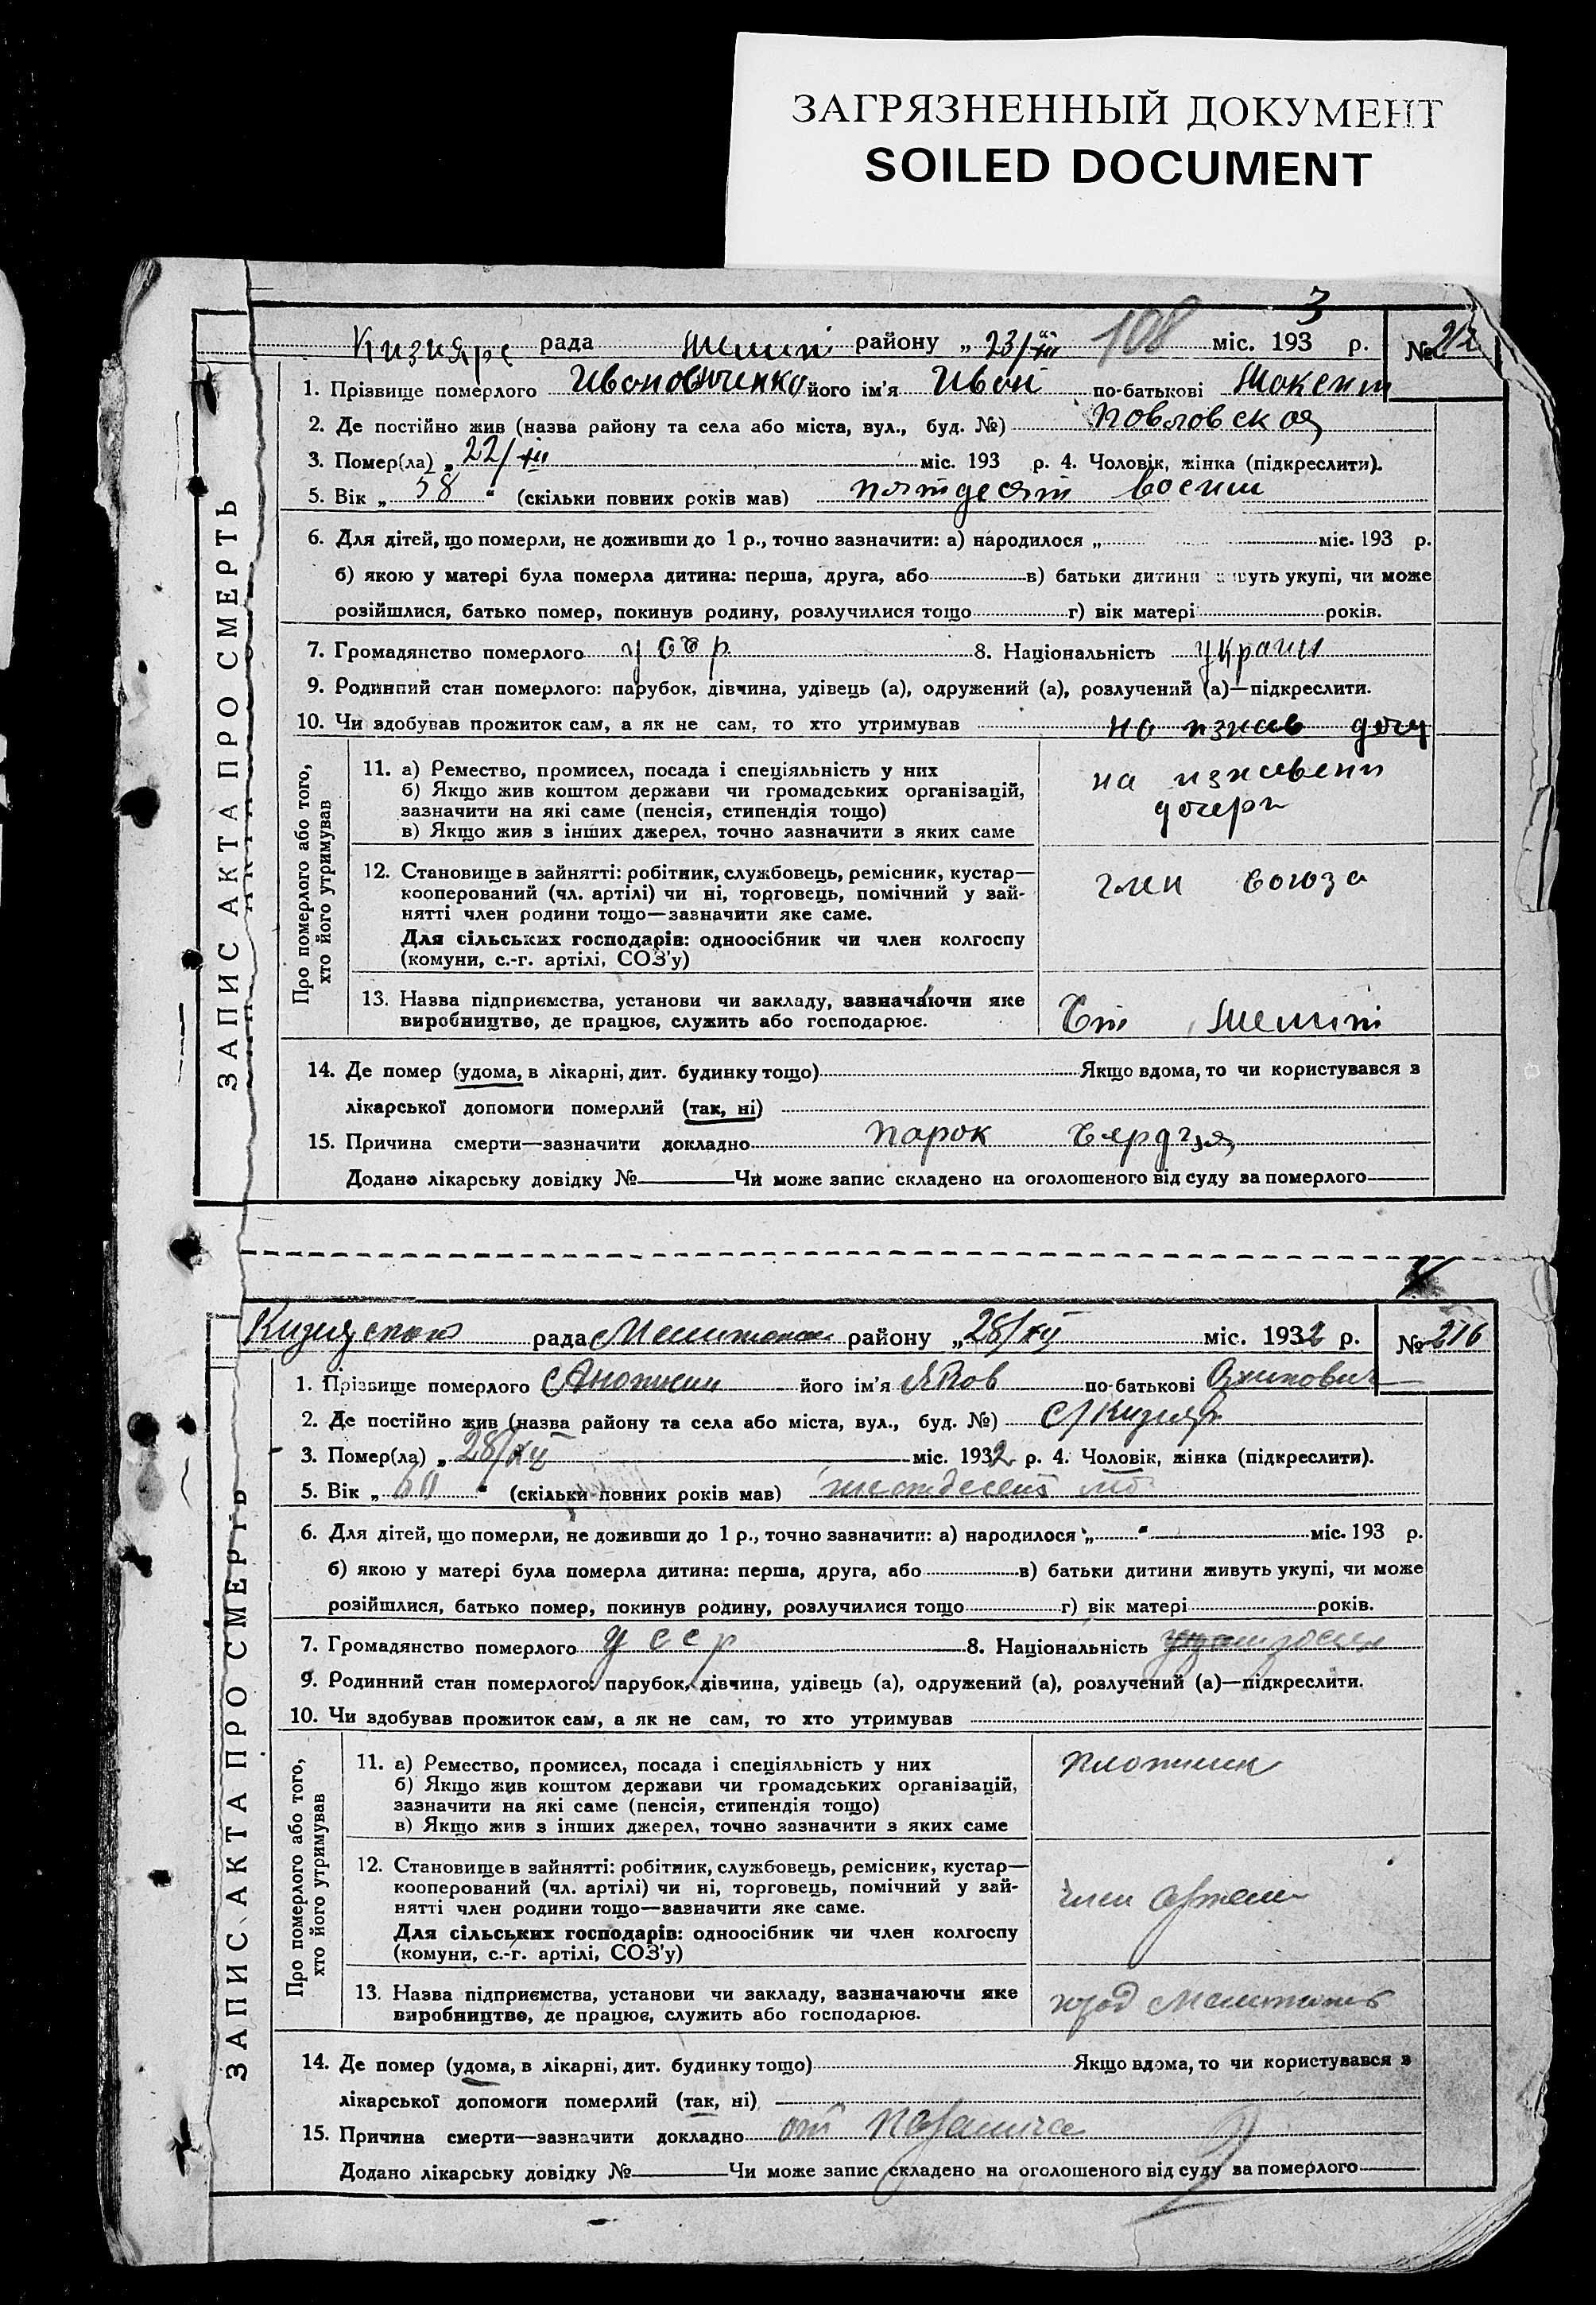 ЗАГРЯЗНЕННЫЙ ДОКУМЕНТ
SOILED DOCUMENT
ЗАПИС АКТА ПРО СМЕРТЬ
3
Кизияре рада району „23/XII 108 міс. 193 р. №
1. Прізвище померлого його ім'я Иван по-батькові
2. Де постійно жив (назва району та села або міста, вул., буд. №) Повловская
3. Помер(ла) „22/XII міс. 193 р. 4. Чоловік, жінка (підкреслити).
5. Вік „58" (скільки повних років мав)
6. Для дітей, що померли, не доживши до 1 р., точно зазначити: а) народилося „ міс. 193 р.
б) якою у матері була померла дитина: перша, друга, або в) батьки дитини живуть укупі, чи може
розійшлися, батько помер, покинув родину, розлучилися тощо г) вік матері років.
7. Громадянство померлого УССр 8. Національність украин
9. Родинний стан померлого: парубок, дівчина, удівець (а), одружений (а), розлучений (а)—підкреслити.
10. Чи здобував прожиток сам, а як не сам, то хто утримував
Про померлого або того,
хто його утримував
11. а) Ремество, промисел, посада і спеціяльність у них
б) Якщо жив коштом держави чи громадських організацій,
зазначити на які саме (пенсія, стипендія тощо)
в) Якщо жив з інших джерел, точно зазначити з яких саме
на
дочери
12. Становище в зайнятті: робітник, службовець, ремісник, кустар—
кооперований (чл. артілі) чи ні, торговець, помічний у зай-
нятті член родини тощо—зазначити яке саме.
Для сільських господарів: одноосібник чи член колгоспу
(комуни, с.-г. артілі, СОЗ'у)
член союза
13. Назва підприємства, установи чи закладу, зазначаючи яке
виробництво, де працює, служить або господарює.
14. Де помер (удома, в лікарні, дит. будинку тощо) Якщо вдома, то чи користувався з
лікарської допомоги померлий (так, ні)
15. Причина смерти—зазначити докладно парок сердця
Додано лікарську довідку № Чи може запис складено на оголошеного від суду за померлого
ЗАПИС АКТА ПРО СМЕРТЬ
рада району „28/XII міс. 1932 р. №216
1. Прізвище померлого його ім'я Яков по-батькові
2. Де постійно жив (назва району та села або міста, вул., буд. №) с/Кизияр
3. Помер(ла) „28/XII міс. 1932 р. 4. Чоловік, жінка (підкреслити).
5. Вік „60" (скільки повних років мав)
6. Для дітей, що померли, не доживши до 1 р., точно зазначити: а) народилося „ " міс. 193 р.
б) якою у матері була померла дитина: перша, друга, або в) батьки дитини живуть укупі, чи може
розійшлися, батько помер, покинув родину, розлучилися тощо г) вік матері років.
7. Громадянство померлого Усср 8. Національність
9. Родинний стан померлого: парубок, дівчина, удівець (а), одружений (а), розлучений (а)—підкреслити.
10. Чи здобував прожиток сам, а як не сам, то хто утримував
Про померлого або того,
хто його утримував
11. а) Ремество, промисел, посада і спеціяльність у них
б) Якщо жив коштом держави чи громадських організацій,
зазначити на які саме (пенсія, стипендія тощо)
в) Якщо жив з інших джерел, точно зазначити з яких саме
плотник
12. Становище в зайнятті: робітник, службовець, ремісник, кустар—
кооперований (чл. артілі) чи ні, торговець, помічний у зай-
нятті член родини тощо—зазначити яке саме.
Для сільських господарів: одноосібник чи член колгоспу
(комуни, с.-г. артілі, СОЗ'у)
член артели
13. Назва підприємства, установи чи закладу, зазначаючи яке
виробництво, де працює, служить або господарює.
14. Де помер (удома, в лікарні, дит. будинку тощо) Якщо вдома, то чи користувався з
лікарської допомоги померлий (так, ні)
15. Причина смерти—зазначити докладно от паралича
Додано лікарську довідку № Чи може запис складено на оголошеного від суду за померлого